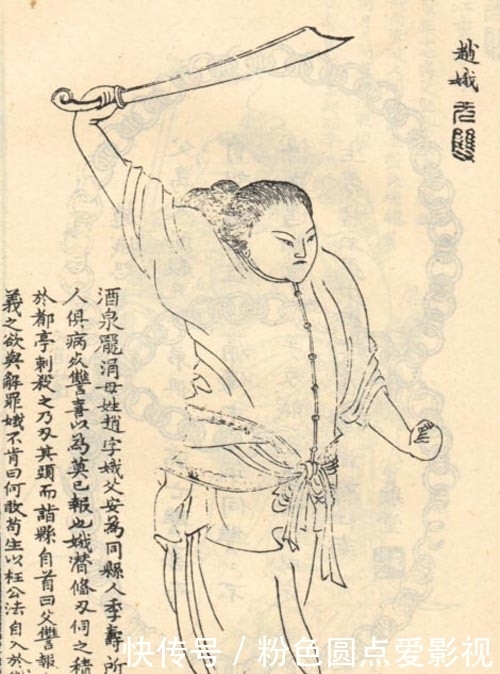 趙娥
无雙
酒泉龎涓母姓趙字娥父安為同縣人李壽所
人俱病死讐喜以為莫已報也娥潛俻刃伺之積
於都亭刺殺之乃刃其頭而詣縣自首曰父讐報
義之欲與解罪娥不肯曰何敢苟生以枉公法自入於
快传号 / 粉色圆点爱影视